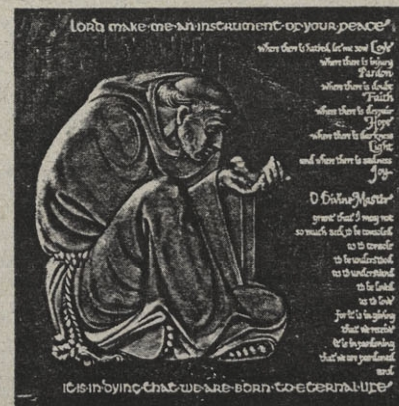 LORD MAKE ME AN INSTRUMENT OF YOUR PEACE
where there is hatred, let me sow Love
where there is injury
Pardon
where there is doubt
Faith
where there is despair
Hope
where there is darkness
Light
and where there is sadness
Joy
O Divine Master
grant that I may not
so much seek to be consoled
as to console
to be understood
as to understand
to be loved
as to love
for it is in giving
that we receive
it is in pardoning
that we are pardoned
and
IT IS IN DYING THAT WE ARE BORN TO ETERNAL LIFE